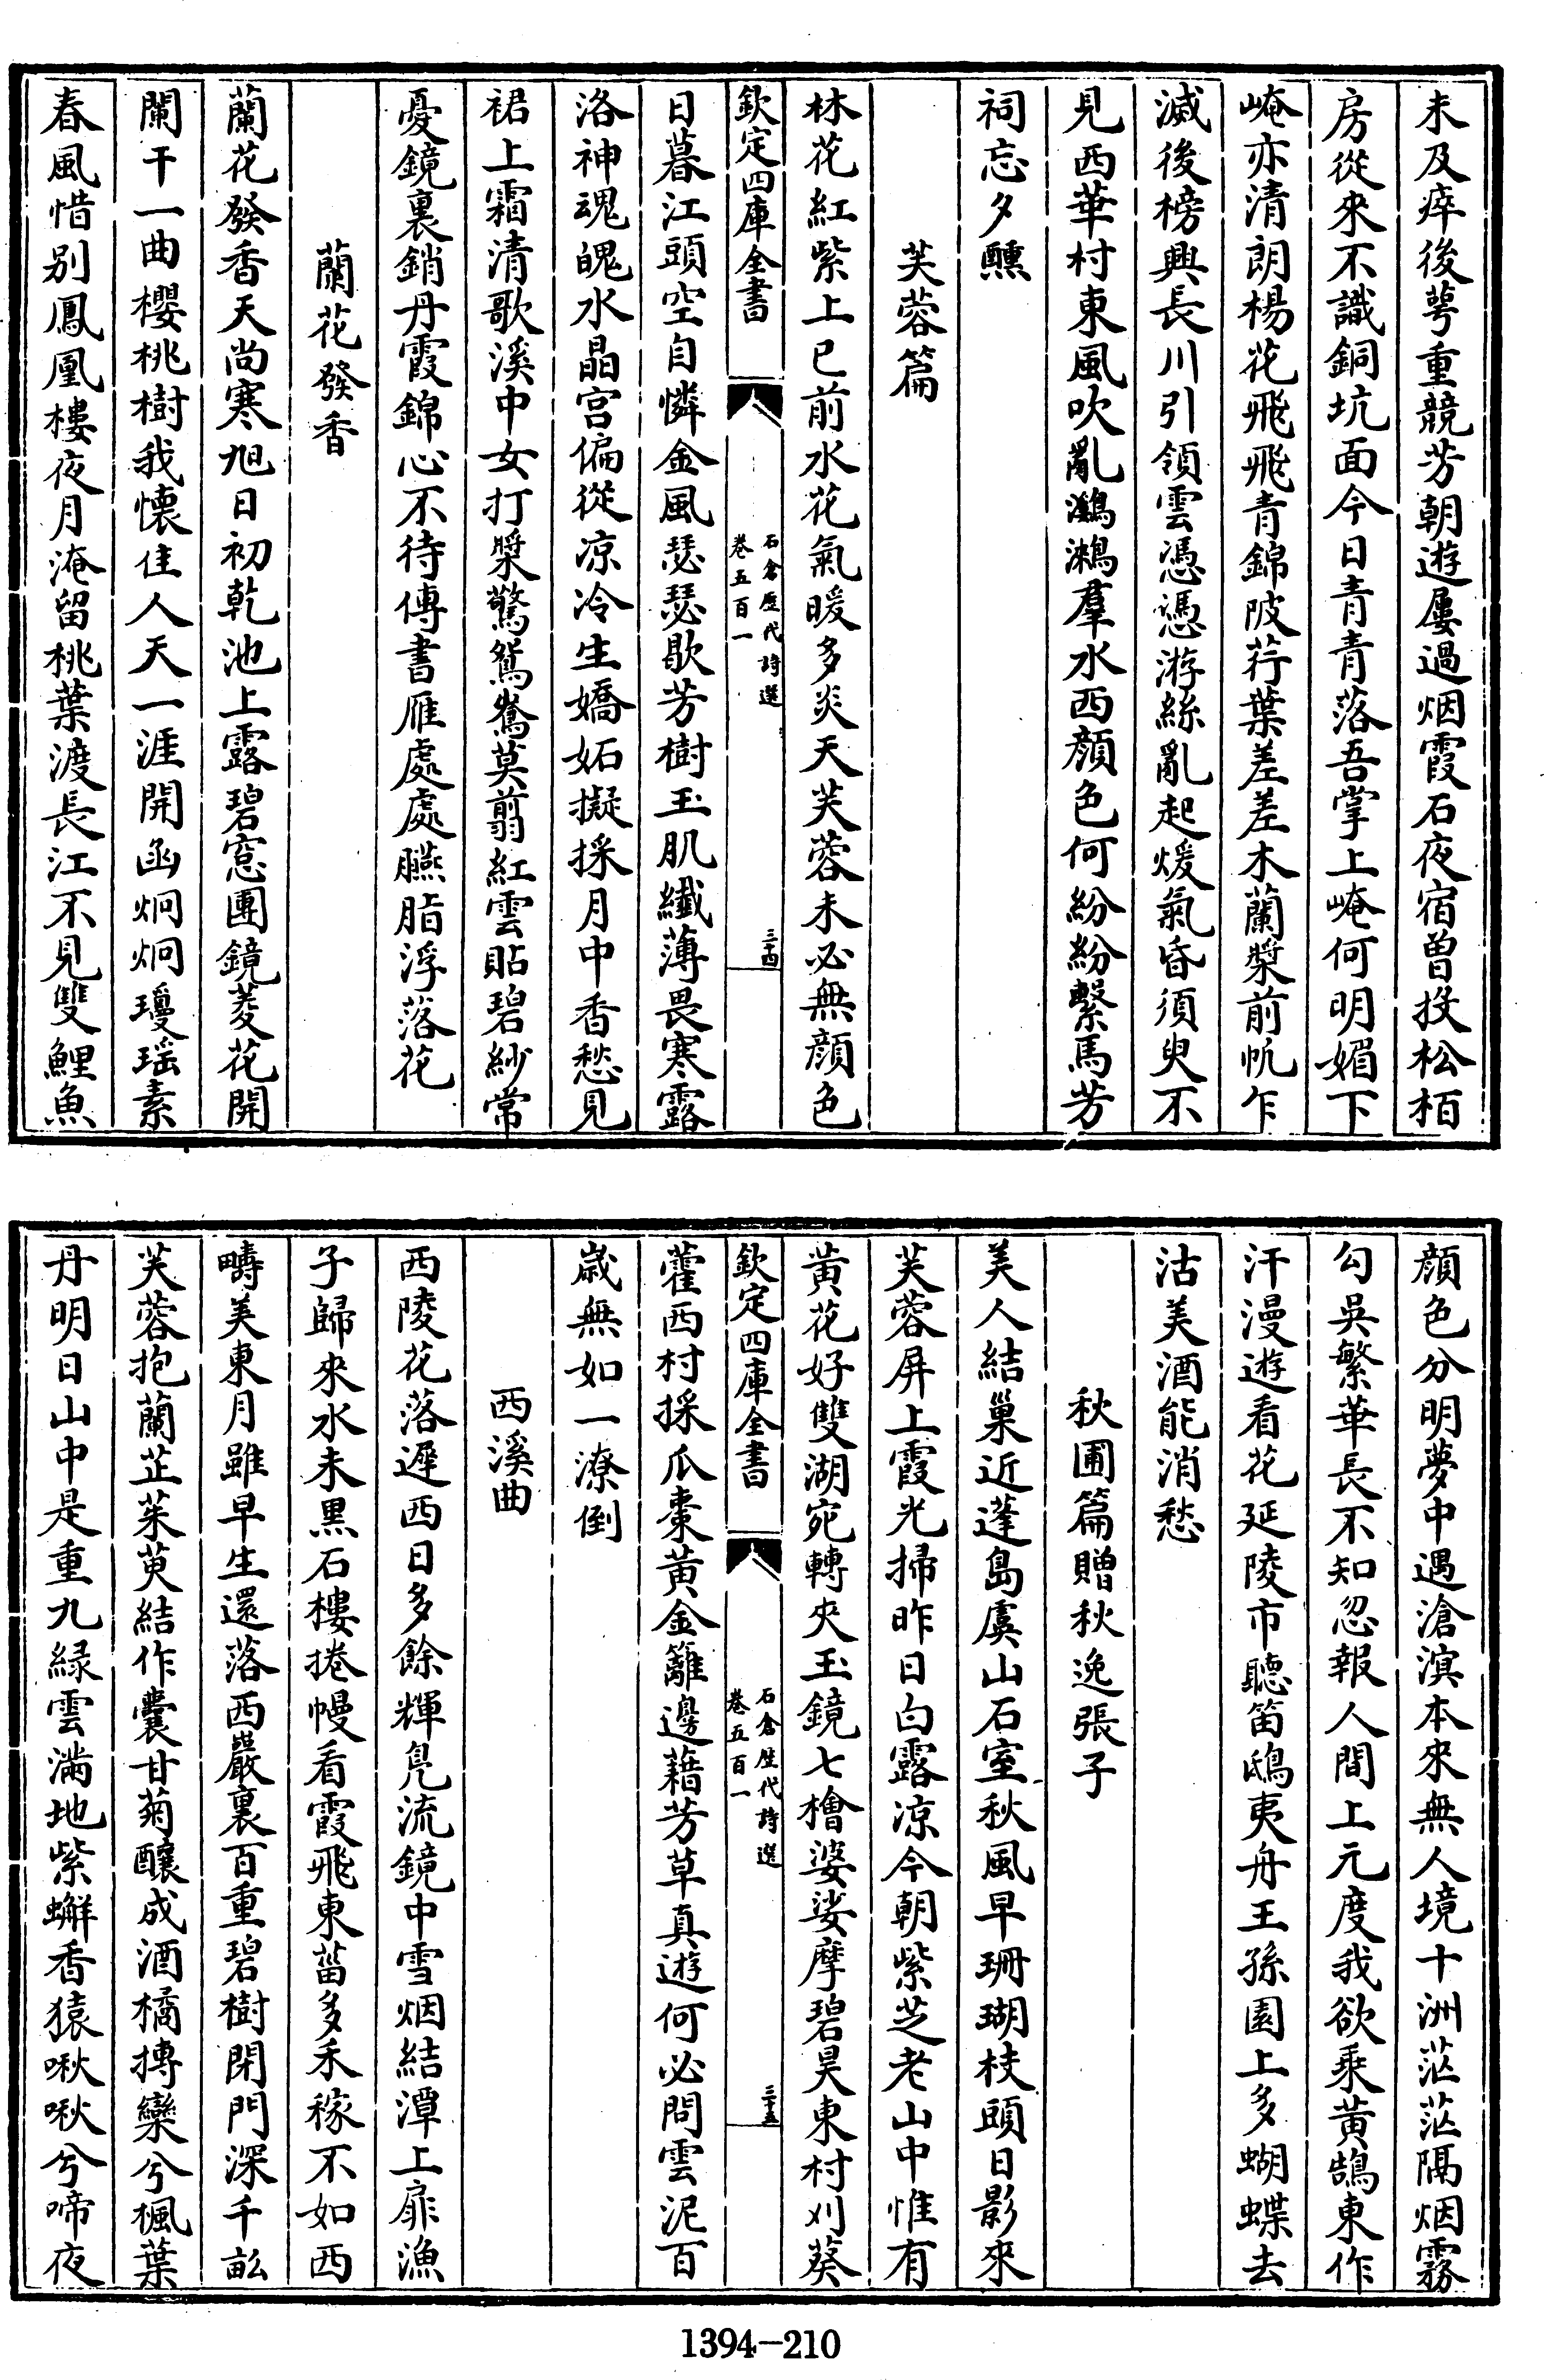 未及瘁後萼重競芳朝遊屢過烟霞石夜宿曽投松栢
房從來不識銅坑面今日青青落吾掌上崦何明媚下
崦亦清朗楊花飛飛青錦陂荇葉差差木蘭槳前㠶乍
滅後榜興長川引領雲憑憑游絲亂起煖氣昏須臾不
見西華村東風吹亂鸂鶒羣水西顔色何紛紛繫馬芳
祠忘夕醺
芙蓉篇
林花紅紫上已前水花氣暖多炎天芙蓉未必無顔色
欽定四庫全書
石倉歴代詩選
卷五百一
三十四
日暮江頭空自憐金風瑟瑟歇芳樹玉肌纖薄畏寒露
洛神魂魄水晶宫偏從凉冷生嬌妬擬採月中香愁見
裙上霜清歌溪中女打槳驚鴛鴦莫翦紅雲貼碧紗常
憂鏡裏銷丹霞錦心不待傳書雁處處臙脂浮落花
蘭花發香
蘭花發香天尚寒旭日初乾池上露碧窓團鏡菱花開
闌干一曲櫻桃樹我懷佳人天一涯開函炯炯瓊瑶素
春風惜别鳳凰樓夜月淹留桃葉渡長江不見雙鯉魚
顔色分明夢中遇滄溟本來無人境十洲茫茫隔烟霧
勾吳繁華長不知忽報人間上元度我欲乘黄鵠東作
汗漫遊看花延陵市聽笛鴟夷舟王孫園上多蝴蝶去
沽美酒能消愁
秋圃篇贈秋逸張子
美人結巢近蓬島虞山石室秋風早珊瑚枝頭日影來
芙蓉屏上霞光掃昨日白露凉今朝紫芝老山中惟有
黄花好雙湖宛轉夾玉鏡七檜婆娑摩碧昊東村刈葵
欽定四庫全書
石倉歴代詩選
卷五百一
三十五
藿西村採瓜棗黄金籬邊藉芳草真遊何必問雲泥百
歳無如一潦倒
西溪曲
西陵花落遲西日多餘輝鳬流鏡中雪烟結潭上扉漁
子歸來水未黒石樓捲幔看霞飛東菑多禾稼不如西
疇美東月雖早生還落西巖裏百重碧樹閉門深千畝
芙蓉抱蘭芷茱萸結作囊甘菊釀成酒橘摶欒兮楓葉
丹明日山中是重九緑雲滿地紫蠏香猿啾啾兮啼夜
1394-210